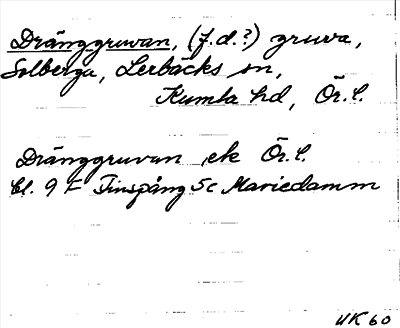 Dränggruvan, (f.d.?) gruva,
Solberga, Lerbäcks sn,
Kumla hd, Ör. l.
Dränggruvan, ek Ör. l.
bl. 9 F Finspång 5c Mariedamm
UK 60